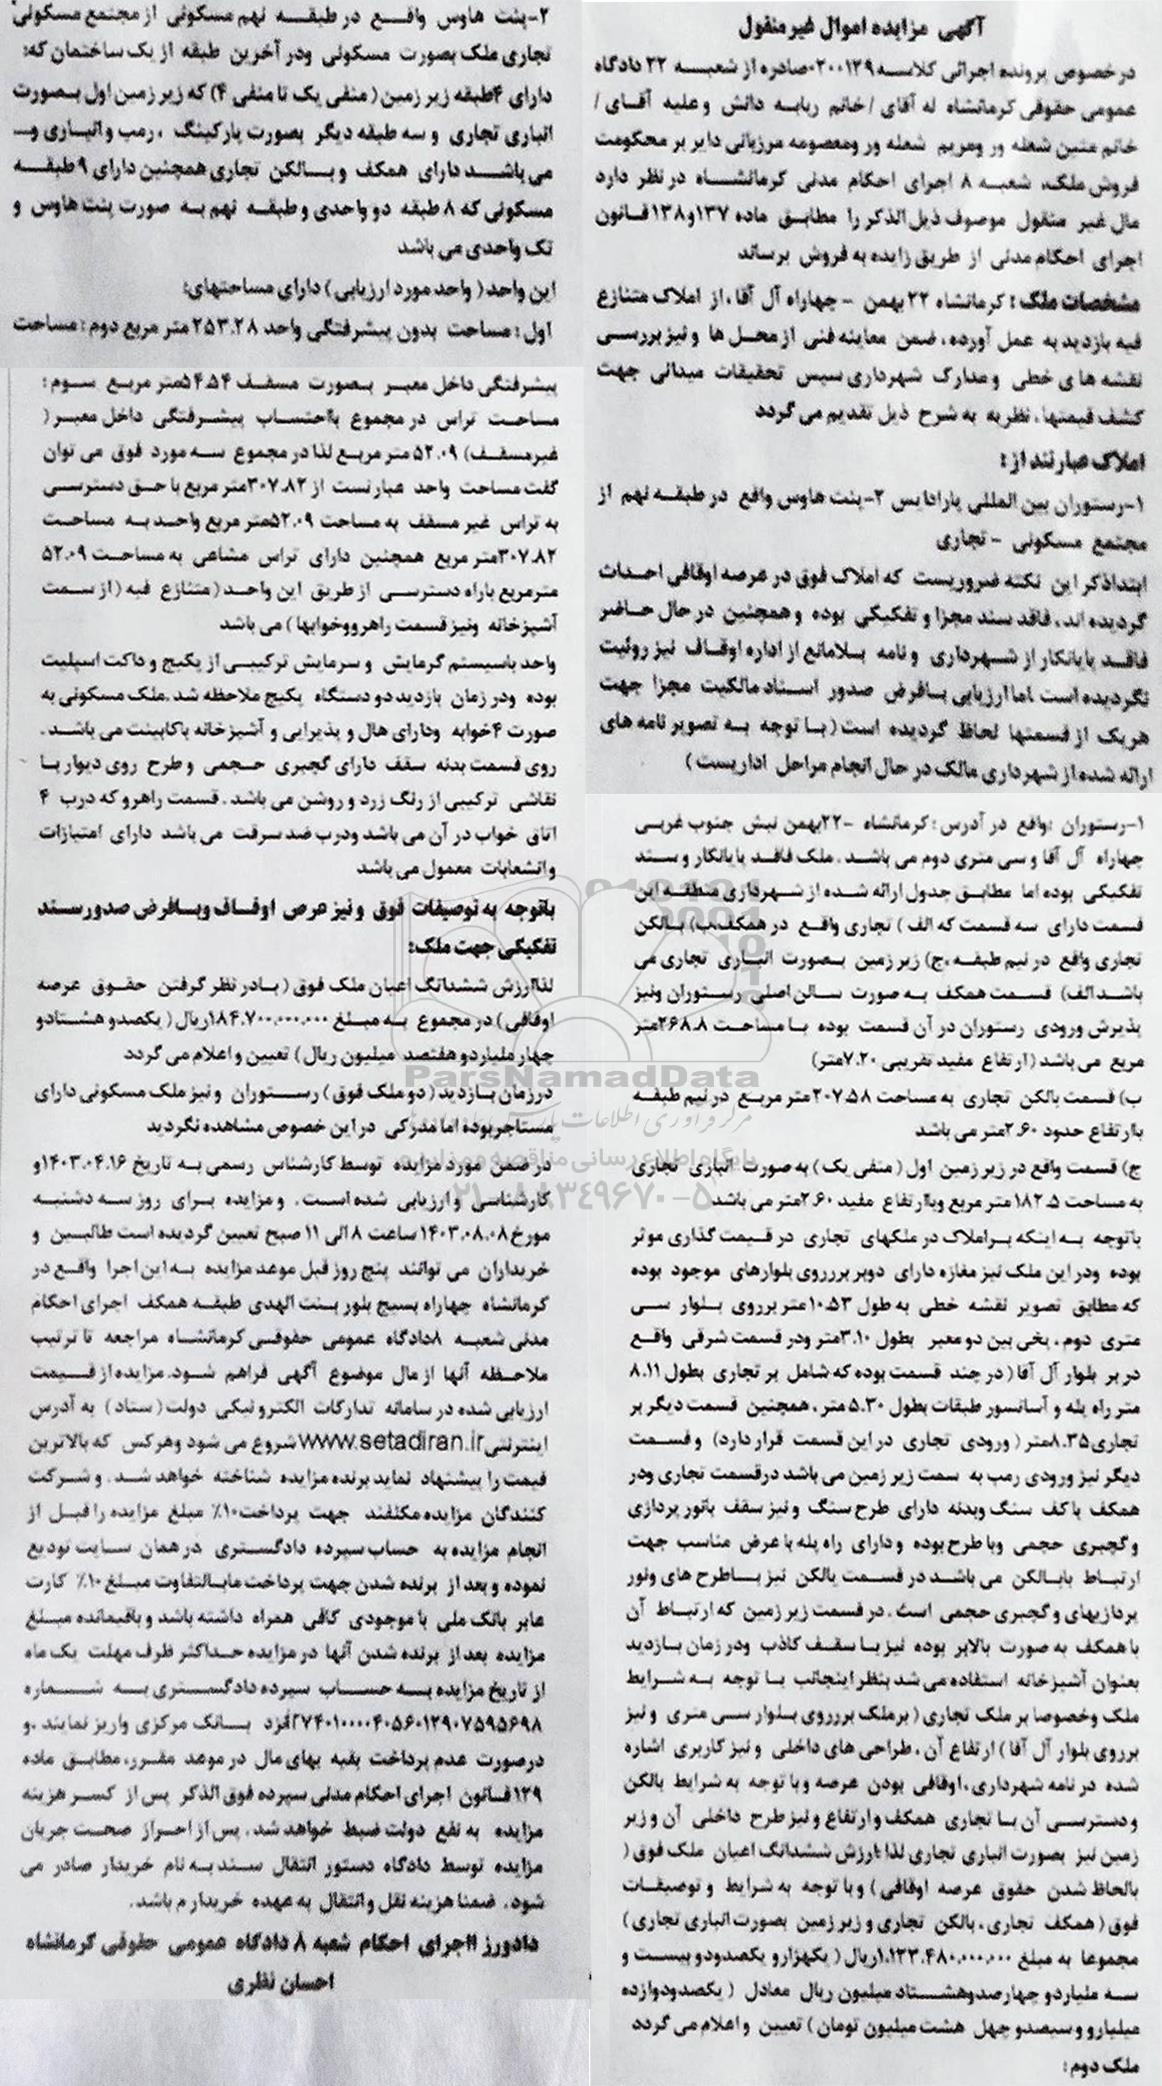 آگهی مزایده اموال غیر منقول
در خصوص پرونده اجرائی کلاسه ۰۲۰۰۱۲۹ صادره از شعبه ۲۲ دادگاه
عمومی حقوقی کرمانشاه له آقای / خانم ربابه دانش وعلیه آقای /
خانم متین شعله ور ومریم شعله ور ومعصومه مرزبانی دایر بر محکومت
فروش ملک، شعبه ۸ اجرای احکام مدنی کرمانشاه در نظر دارد
مال غیر منقول موصوف ذیل الذکر را مطابق ماده ۱۳۷و۱۳۸قانون
اجرای احکام مدنی از طریق زایده به فروش برساند
مشخصات ملک : کرمانشاه ۲۲ بهمن - چهاراه آل آقا، از املاک متنازع
فیه بازدید به عمل آورده، ضمن معاینه فنی از محل ها ونیز بررسی
نقشه های خطی ومدارک شهرداری سپس تحقیقات میدانی جهت
کشف قیمتها، نظریه به شرح ذیل تقدیم می گردد
املاک عبارتند از :
۱-رستوران بین المللی پارادایس ۲-پنت هاوس واقع در طبقه نهم از
مجتمع مسکونی - تجاری
ابتداذکر این نکته ضروریست که املاک فوق در عرصه اوقافی احداث
گردیده اند، فاقد سند مجزا و تفکیکی بوده وهمچنین در حال حاضر
فاقد پایانکار از شهرداری ونامه بلامانع از اداره اوقاف نیز روئیت
نگردیده است .اما ارزیابی بافرض صدور اسناد مالکیت مجزا جهت
هریک از قسمتها لحاظ گردیده است (با توجه به تصویر نامه های
ارائه شده از شهرداری مالک در حال انجام مراحل اداریست )
۱-رستوران :واقع در آدرس : کرمانشاه -۲۲بهمن نبش جنوب غربی
چهاراه آل آقا و سی متری دوم می باشد . ملک فاقد پایانکار و سند
تفکیکی بوده اما مطابق جدول ارائه شده از شهرداری منطقه این
قسمت دارای سه قسمت که الف ) تجاری واقع در همکف،ب) بالکن
تجاری واقع در نیم طبقه ،ج) زیر زمین بصورت انباری تجاری می
باشد الف) قسمت همکف به صورت سالن اصلی رستوران ونیز
پذیرش ورودی رستوران در آن قسمت بوده با مساحت ۲۶۸.۸متر
مربع می باشد ( ارتفاع مفید تقریبی ۷.۲۰متر)
ب) قسمت بالکن تجاری به مساحت ۲۰۷.۵۸ متر مربع در نیم طبقه
باارتفاع حدود ۲.۶۰متر می باشد
ج) قسمت واقع در زیر زمین اول ( منفی یک ) به صورت انباری تجاری
به مساحت ۱۸۲.۵ متر مربع وباارتفاع مفید ۲.۶۰متر می باشد
باتوجه به اینکه براملاک در ملکهای تجاری در قیمت گذاری موثر
بوده ودر این ملک نیز مغازه دارای دوبر برروی بلوارهای موجود بوده
که مطابق تصویر نقشه خطی به طول ۱۰.۵۳متر برروی بلوار سی
متری دوم ، پخی بین دو معبر بطول ۳.۱۰متر ودر قسمت شرقی واقع
در بر بلوار آل آقا ( در چند قسمت بوده که شامل بر تجاری بطول ۸.۱۱
متر راه پله و آسانسور طبقات بطول ۵.۳۰ متر ، همچنین قسمت دیگر بر
تجاری ۸.۳۵متر ( ورودی تجاری در این قسمت قرار دارد) وقسمت
دیگر نیز ورودی رمپ به سمت زیر زمین می باشد درقسمت تجاری ودر
همکف باکف سنگ وبدنه دارای طرح سنگ ونیز سقف بانور پردازی
وگچبری حجمی وبا طرح بوده ودارای راه پله با عرض مناسب جهت
ارتباط بابالکن می باشد در قسمت بالکن نیز باطرح های ونور
پردازیهای وگچبری حجمی است . در قسمت زیر زمین که ارتباط آن
با همکف به صورت بالابر بوده نیز با سقف کاذب ودر زمان بازدید
بعنوان آشپزخانه استفاده می شد بنظر اینجانب با توجه به شرایط
ملک وخصوصا بر ملک تجاری ( برملک برروی بلوار سی متری ونیز
برروی بلوار آل آقا ) ارتفاع آن ، طراحی های داخلی ونیز کاربری اشاره
شده در نامه شهرداری ،اوقافی بودن عرصه وبا توجه به شرایط بالکن
ودسترسی آن با تجاری همکف وارتفاع ونیز طرح داخلی آن وزیر
زمین نیز بصورت انباری تجاری لذا :ارزش ششدانگ اعیان ملک فوق (
بالحاظ شدن حقوق عرصه اوقافی ) وبا توجه به شرایط وتوصیفات
فوق ( همکف تجاری ، بالکن تجاری وزیر زمین بصورت انباری تجاری)
مجموعا به مبلغ ۱.۱۲۳.۴۸۰.۰۰۰.۰۰۰ریال ( یکهزارو یکصدودو بیست و
سه ملیاردو چهارصدوهشتاد میلیون ریال معادل ( یکصدودوازده
میلیارو و سیصدو چهل هشت میلیون تومان ) تعیین واعلام می گردد
ملک دوم :
۲-پنت هاوس واقع در طبقه نهم مسکونی از مجتمع مسکونی
تجاری ملک بصورت مسکونی ودر آخرین طبقه از یک ساختمان که:
دارای ۴طبقه زیر زمین ( منفی یک تا منفی ۴) که زیر زمین اول بصورت
انباری تجاری و سه طبقه دیگر بصورت پارکینگ ، رمپ و انباری و...
می باشد دارای همکف وبالکن تجاری همچنین دارای ۹طبقه
مسکونی که ۸ طبقه دو واحدی و طبقه نهم به صورت پنت هاوس و
تک واحدی می باشد
این واحد ( واحد مورد ارزیابی ) دارای مساحتهای:
اول : مساحت بدون پیشرفتگی واحد ۲۵۳.۲۸ متر مربع دوم : مساحت
پیشرفتگی داخل معبر بصورت مسقف ۵۴.۵۴متر مربع سوم :
مساحت تراس در مجموع بااحتساب پیشرفتگی داخل معبر (
غیرمسقف) ۵۲.۰۹ متر مربع لذا در مجموع سه مورد فوق می توان
گفت مساحت واحد عبارتست از ۳۰۷.۸۲متر مربع با حق دسترسی
به تراس غیر مسقف به مساحت ۵۲.۰۹متر مربع واحد به مساحت
۳۰۷.۸۲متر مربع همچنین دارای تراس مشاعی به مساحت ۵۲.۰۹
مترمربع باراه دسترسی از طریق این واحد ( متنازع فیه ( از سمت
آشپزخانه ونیز قسمت راهروخوابها ) می باشد
واحد باسیستم گرمایش و سرمایش ترکیبی از پکیج و داکت اسپلیت
بوده ودر زمان بازدید دو دستگاه پکیج ملاحظه شد .ملک مسکونی به
صورت ۴خوابه ودارای هال و پذیرایی و آشپزخانه باکابینت می باشد .
روی قسمت بدنه سقف دارای گچبری حجمی وطرح روی دیوار با
نقاشی ترکیبی از رنگ زرد و روشن می باشد . قسمت راهرو که درب ۴
اتاق خواب در آن می باشد ودرب ضد سرقت می باشد دارای امتیازات
وانشعابات معمول می باشد
باتوجه به توصیفات فوق ونیز عرص اوقاف وبافرض صدورسند
تفکیکی جهت ملک:
لذاارزش ششدانگ اعیان ملک فوق ( بادر نظر گرفتن حقوق عرصه
اوقافی ) در مجموع به مبلغ ۱۸۴.۷۰۰.۰۰۰.۰۰۰ریال ( یکصدو هشتادو
چهار ملیاردو هفتصد میلیون ریال ) تعیین و اعلام می گردد
درزمان بازدید (دو ملک فوق ) رستوران ونیز ملک مسکونی دارای
مستاجربوده اما مدرکی در این خصوص مشاهده نگردید
در ضمن مورد مزایده توسط کارشناس رسمی به تاریخ ۱۴۰۳.۰۴.۱۶و
کارشناسی وارزیابی شده است . ومزایده برای روز سه دشنبه
مورخ ۱۴۰۳.۰۸.۰۸ ساعت ۸ الی ۱۱ صبح تعیین گردیده است طالبین و
خریداران می توانند پنج روز قبل موعد مزایده به این اجرا واقع در
کرمانشاه چهاراه بسیج بلور بنت الهدی طبقه همکف اجرای احکام
مدنی شعبه ۸دادگاه عمومی حقوقی کرمانشاه مراجعه تا ترتیب
ملاحظه آنها از مال موضوع آگهی فراهم شود. مزایده از قیمت
ارزیابی شده در سامانه تدارکات الکترونیکی دولت ( ستاد ) به آدرس
اینترنتی www.setadiran.ir شروع می شود وهرکس که بالاترین
قیمت را پیشنهاد نماید برنده مزایده شناخته خواهد شد . و شرکت
کنندگان مزایده مکلفند جهت پرداخت ۱۰٪ مبلغ مزایده را قبل از
انجام مزایده به حساب سپرده دادگستری در همان سایت تودیع
نموده و بعد از برنده شدن جهت پرداخت مابالتفاوت مبلغ ۱۰٪ کارت
عابر بانک ملی با موجودی کافی همراه داشته باشد و باقیمانده مبلغ
مزایده بعد از برنده شدن آنها در مزایده حداکثر ظرف مهلت یک ماه
از تاریخ مزایده به حساب سپرده دادگستری به شماره
نزد بانک مرکزی واریز نمایند .و
درصورت عدم پرداخت بقیه بهای مال در موعد مقرر، مطابق ماده
۱۲۹ قانون اجرای احکام مدنی سپرده فوق الذکر پس از کسر هزینه
مزایده به نفع دولت ضبط خواهد شد . پس از احراز صحت جریان
مزایده توسط دادگاه دستور انتقال سند به نام خریدار صادر می
شود . ضمنا هزینه نقل وانتقال به عهده خریدار م باشد.
دادورز ااجرای احکام شعبه ۸ دادگاه عمومی حقوقی کرمانشاه
احسان نظری
ParsNamadData
مرکز فرآوری اطلاعات پارس نماد داده ها
پایگاه اطلاع رسانی مناقصه و مزایده
۰۲۱-۸۸۳۴۹۶۷۰-۵